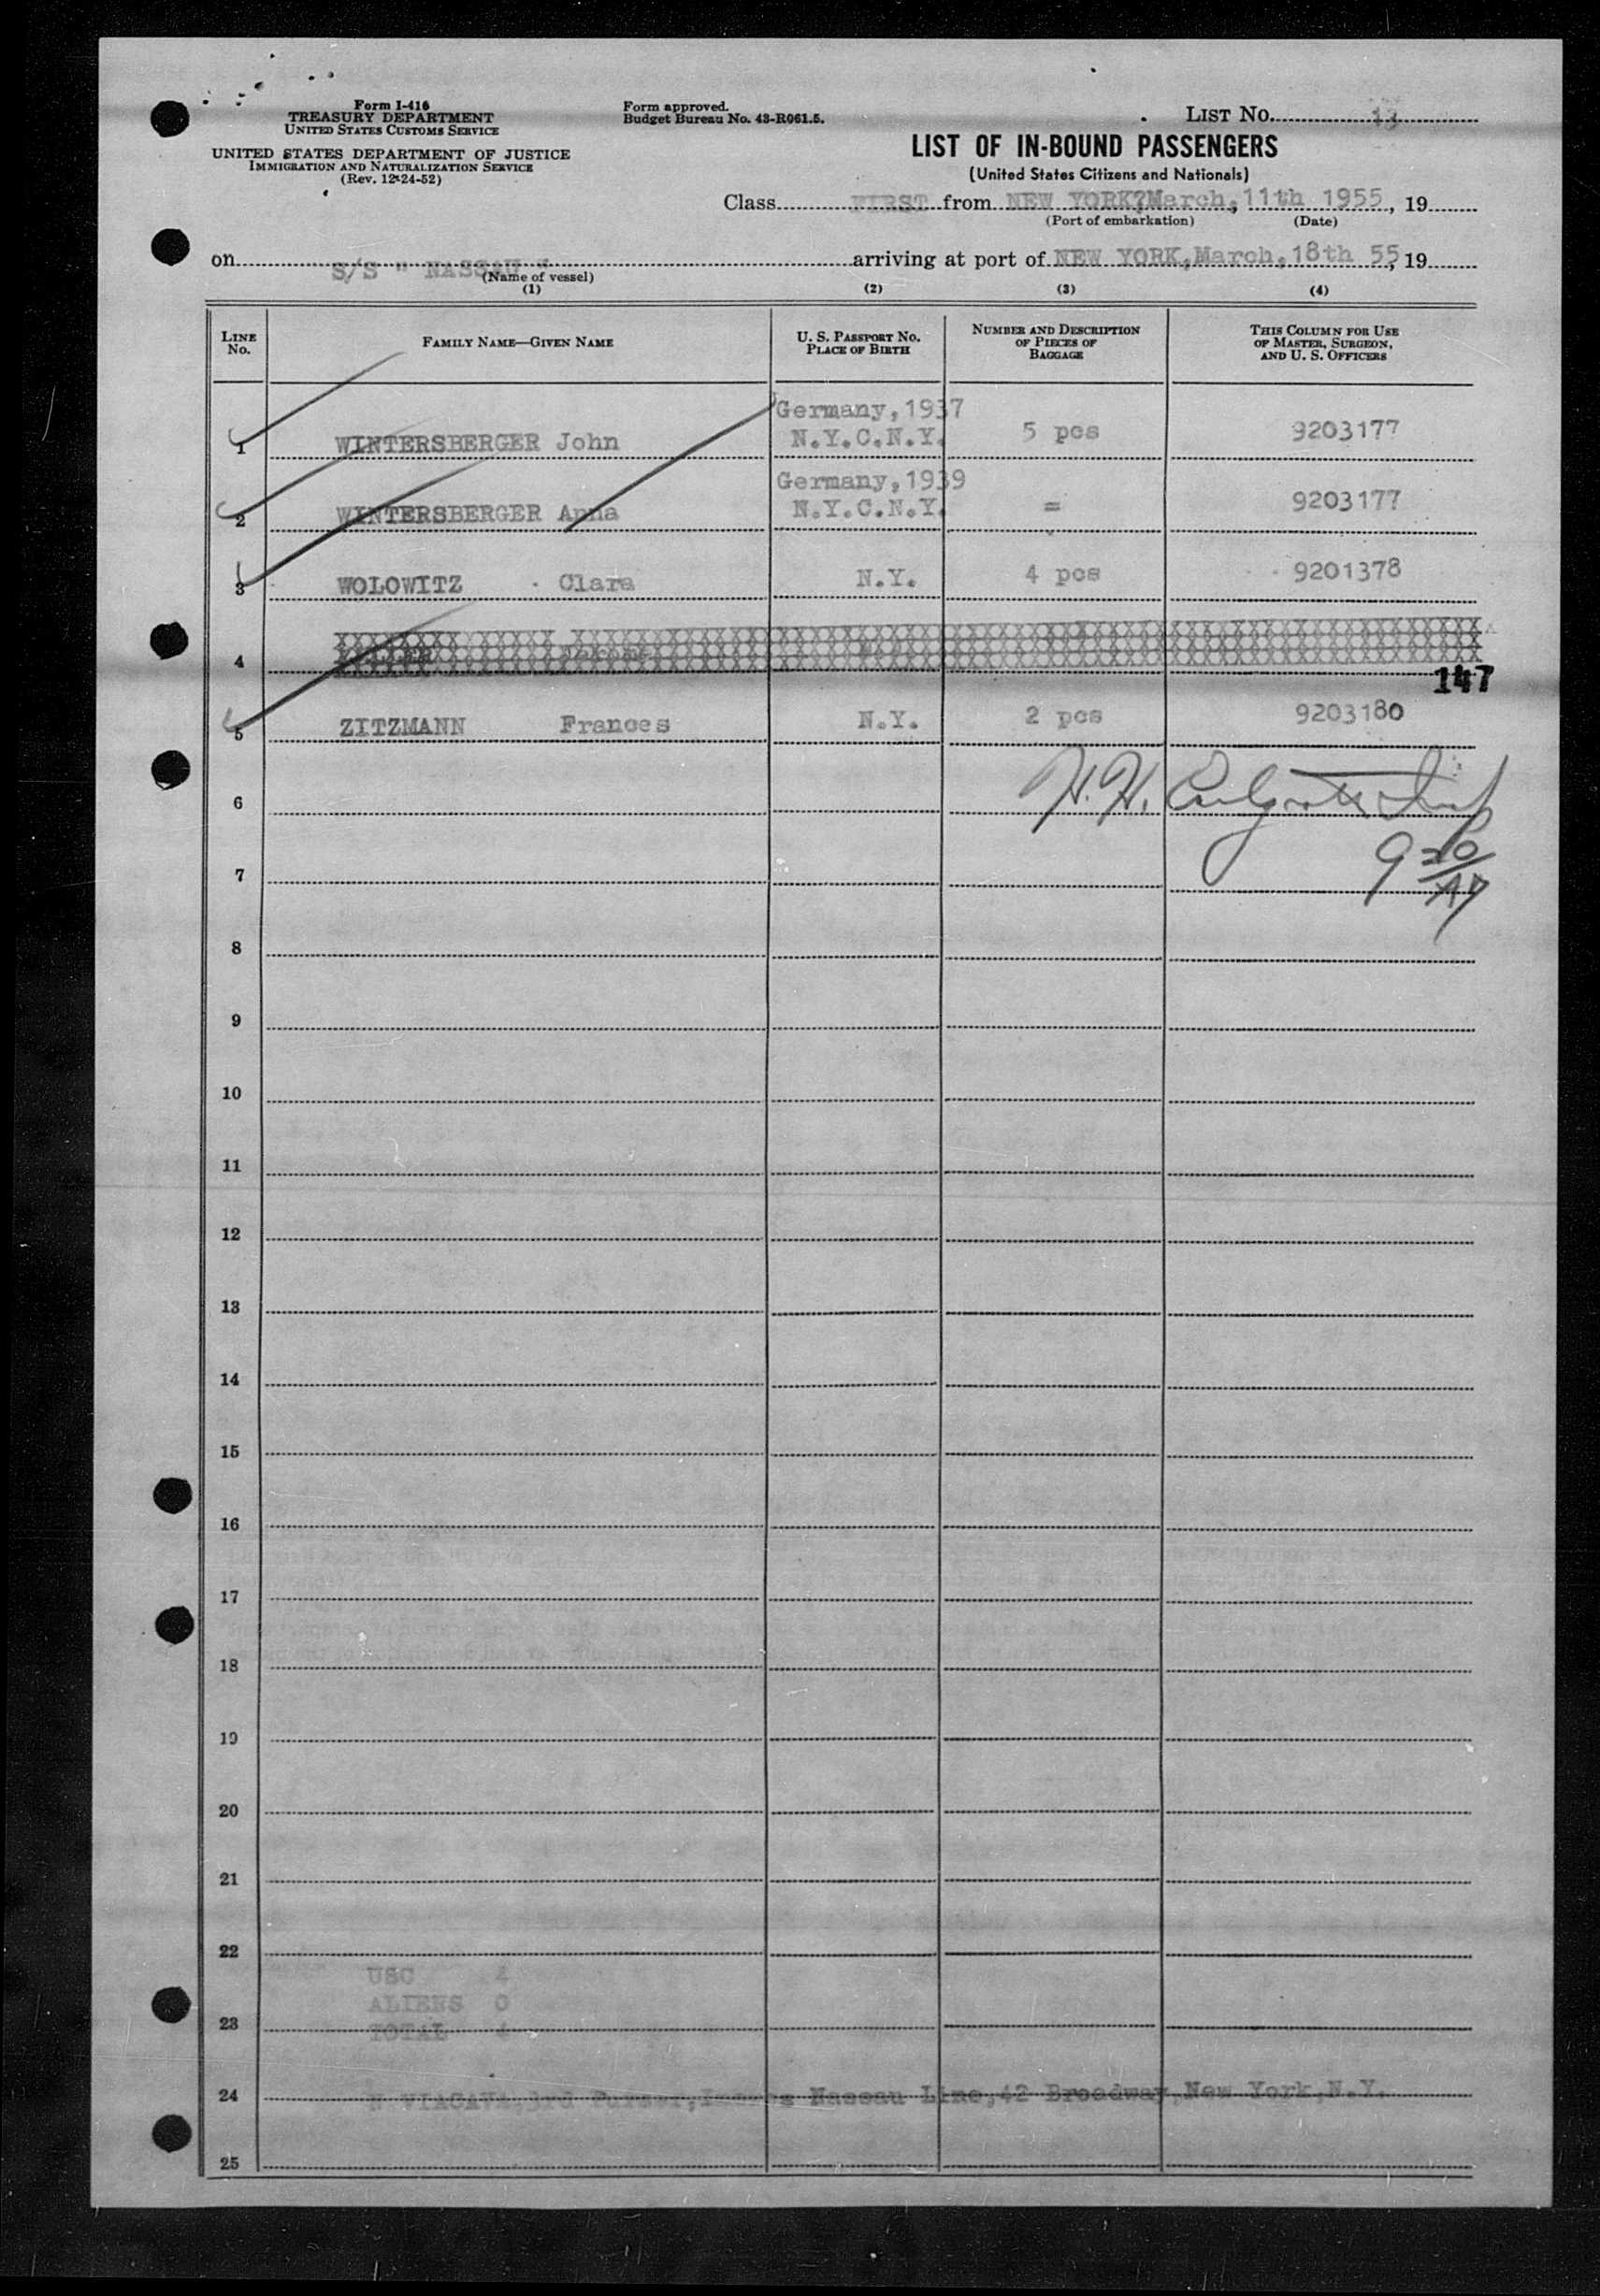 Form I-416
TREASURY DEPARTMENT
UNITED STATES CUSTOMS SERVICE
UNITED STATES DEPARTMENT OF JUSTICE
IMMIGRATION AND NATURALIZATION SERVICE
(Rev. 12-24-52)
Form approved.
Budget Bureau No. 43-R061.5.
LIST No. 13
LIST OF IN-BOUND PASSENGERS
(United States Citizens and Nationals)
Class FIRST from NEW YORK?March,11th 1955, 19
(Port of embarkation) (Date)
on S/S " NASSAU " arriving at port of NEW YORK,March,18th 55, 19
(Name of vessel)
(1) (2) (3) (4)
LINE No. FAMILY NAME—GIVEN NAME U. S. PASSPORT No. PLACE OF BIRTH NUMBER AND DESCRIPTION OF PIECES OF BAGGAGE THIS COLUMN FOR USE OF MASTER, SURGEON, AND U. S. OFFICERS
Germany,1937
1 WINTERSBERGER John N.Y.C.N.Y. 5 pcs 9203177
Germany,1939
2 WINTERSBERGER Anna N.Y.C.N.Y. = 9203177
3 WOLOWITZ Clara N.Y. 4 pcs 9201378
4
147
5 ZITZMANN Frances N.Y. 2 pcs 9203180
6 H. H.
7
8
9
10
11
12
13
14
15
16
17
18
19
20
21
22
USC 4
ALIENS 0
23 TOTAL 4
24 N VIACAVA,3rd Purser,Incres Nassau Line,42 Broadway,New York,N.Y.
25